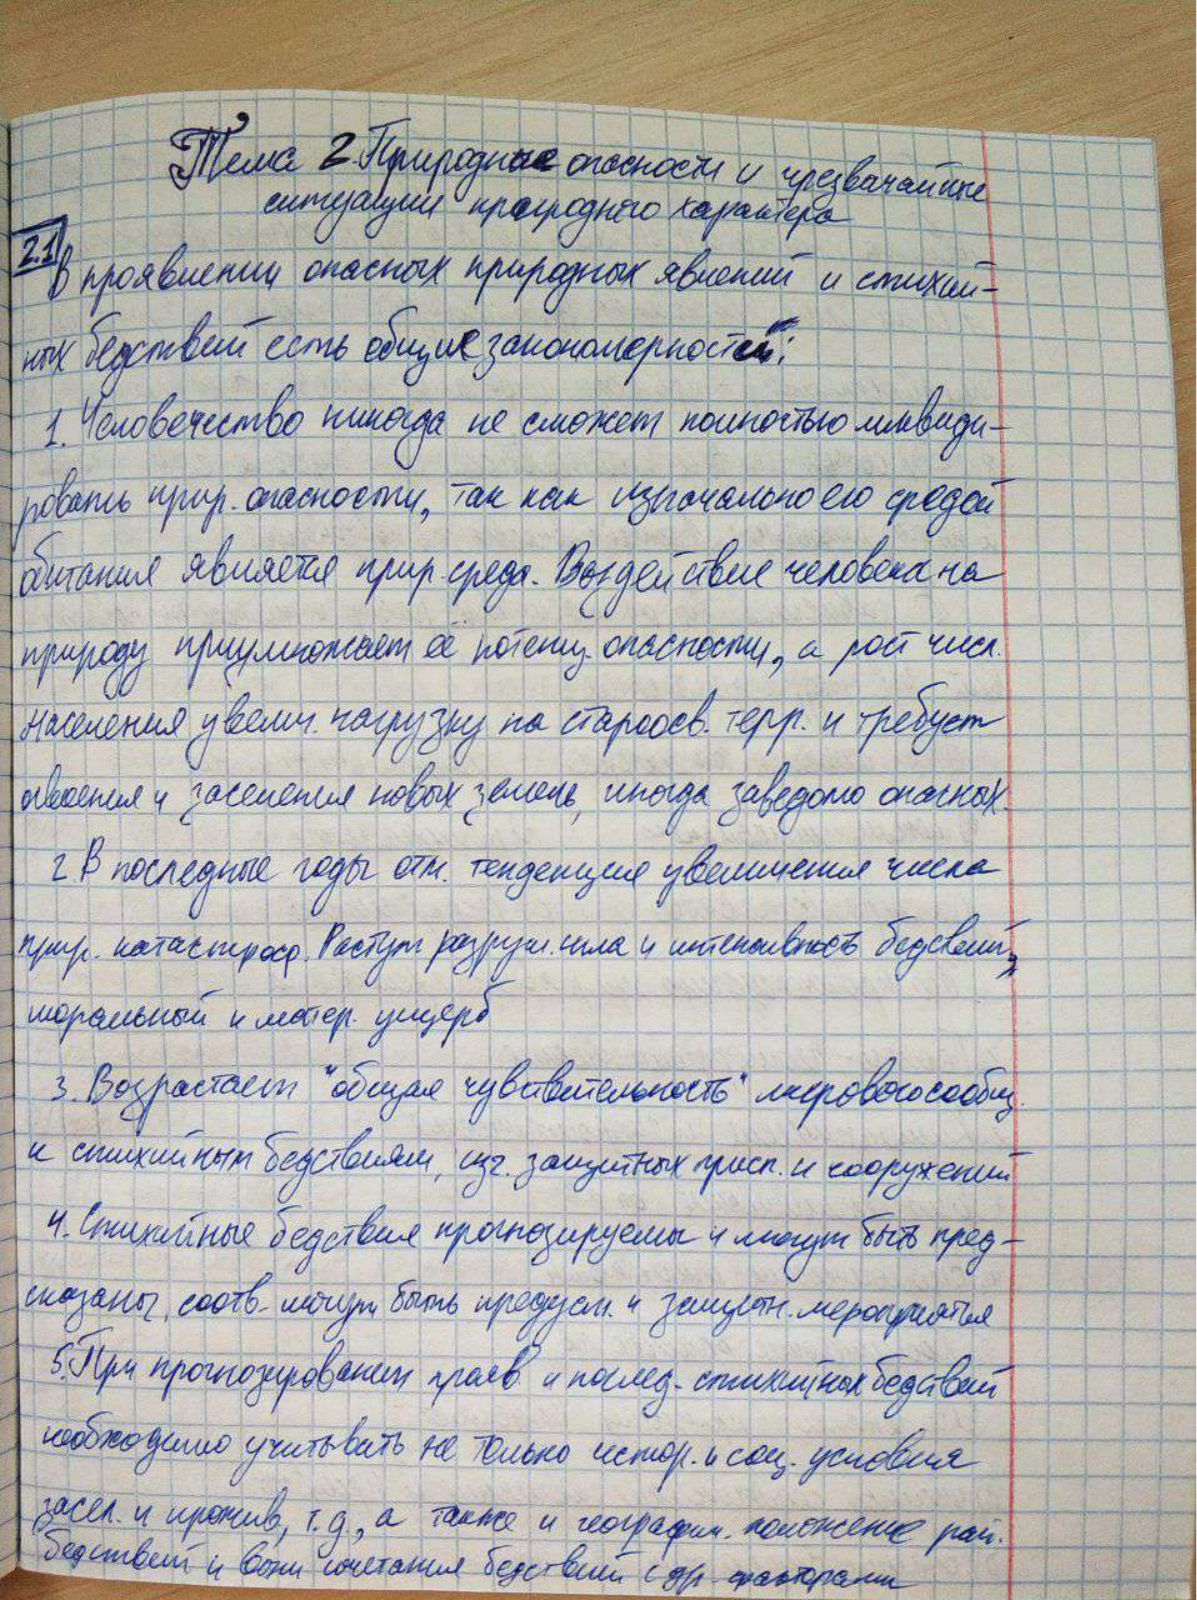 Тема 2. Природные опасности и чрезвачайные
ситуации природного характера
2.1
В проявлении опасных природных явлений и стихий-
ных бедствий есть общие закономерности:
1. Человечество никогда не сможет полностью ликвиди-
ровать прир. опасности, так как изначально его средой
обитания является прир. среда. Воздействие человека на
природу приумножает её потенц. опасности, а рост числ.
населения увелич. нагрузку на староосв. терр. и требует
освоения и заселения новых земель, иногда заведомо опасных.
2. В последные годы отм. тенденция увеличения числа
прир. катастроф. Растут разруш. сила и интенсивность бедствий,
моральный и матер. ущерб
3. Возрастает "общая чувствительность" мирового сообщ.
к стихийным бедствиям, изг. защитных присп. и сооружений
4. Стихийные бедствия прогнозируемы и могут быть пред-
сказаны, соотв. могут быть предусм. и защитн. мероприятия
5. При прогнозировании прояв. и послед. стихийных бедствий
необходимо учитывать не только истор. и соц. условия
засел. и прожив, т.д., а также и географич. положение рай.
бедствий и сочетания бедствий с др. факторами